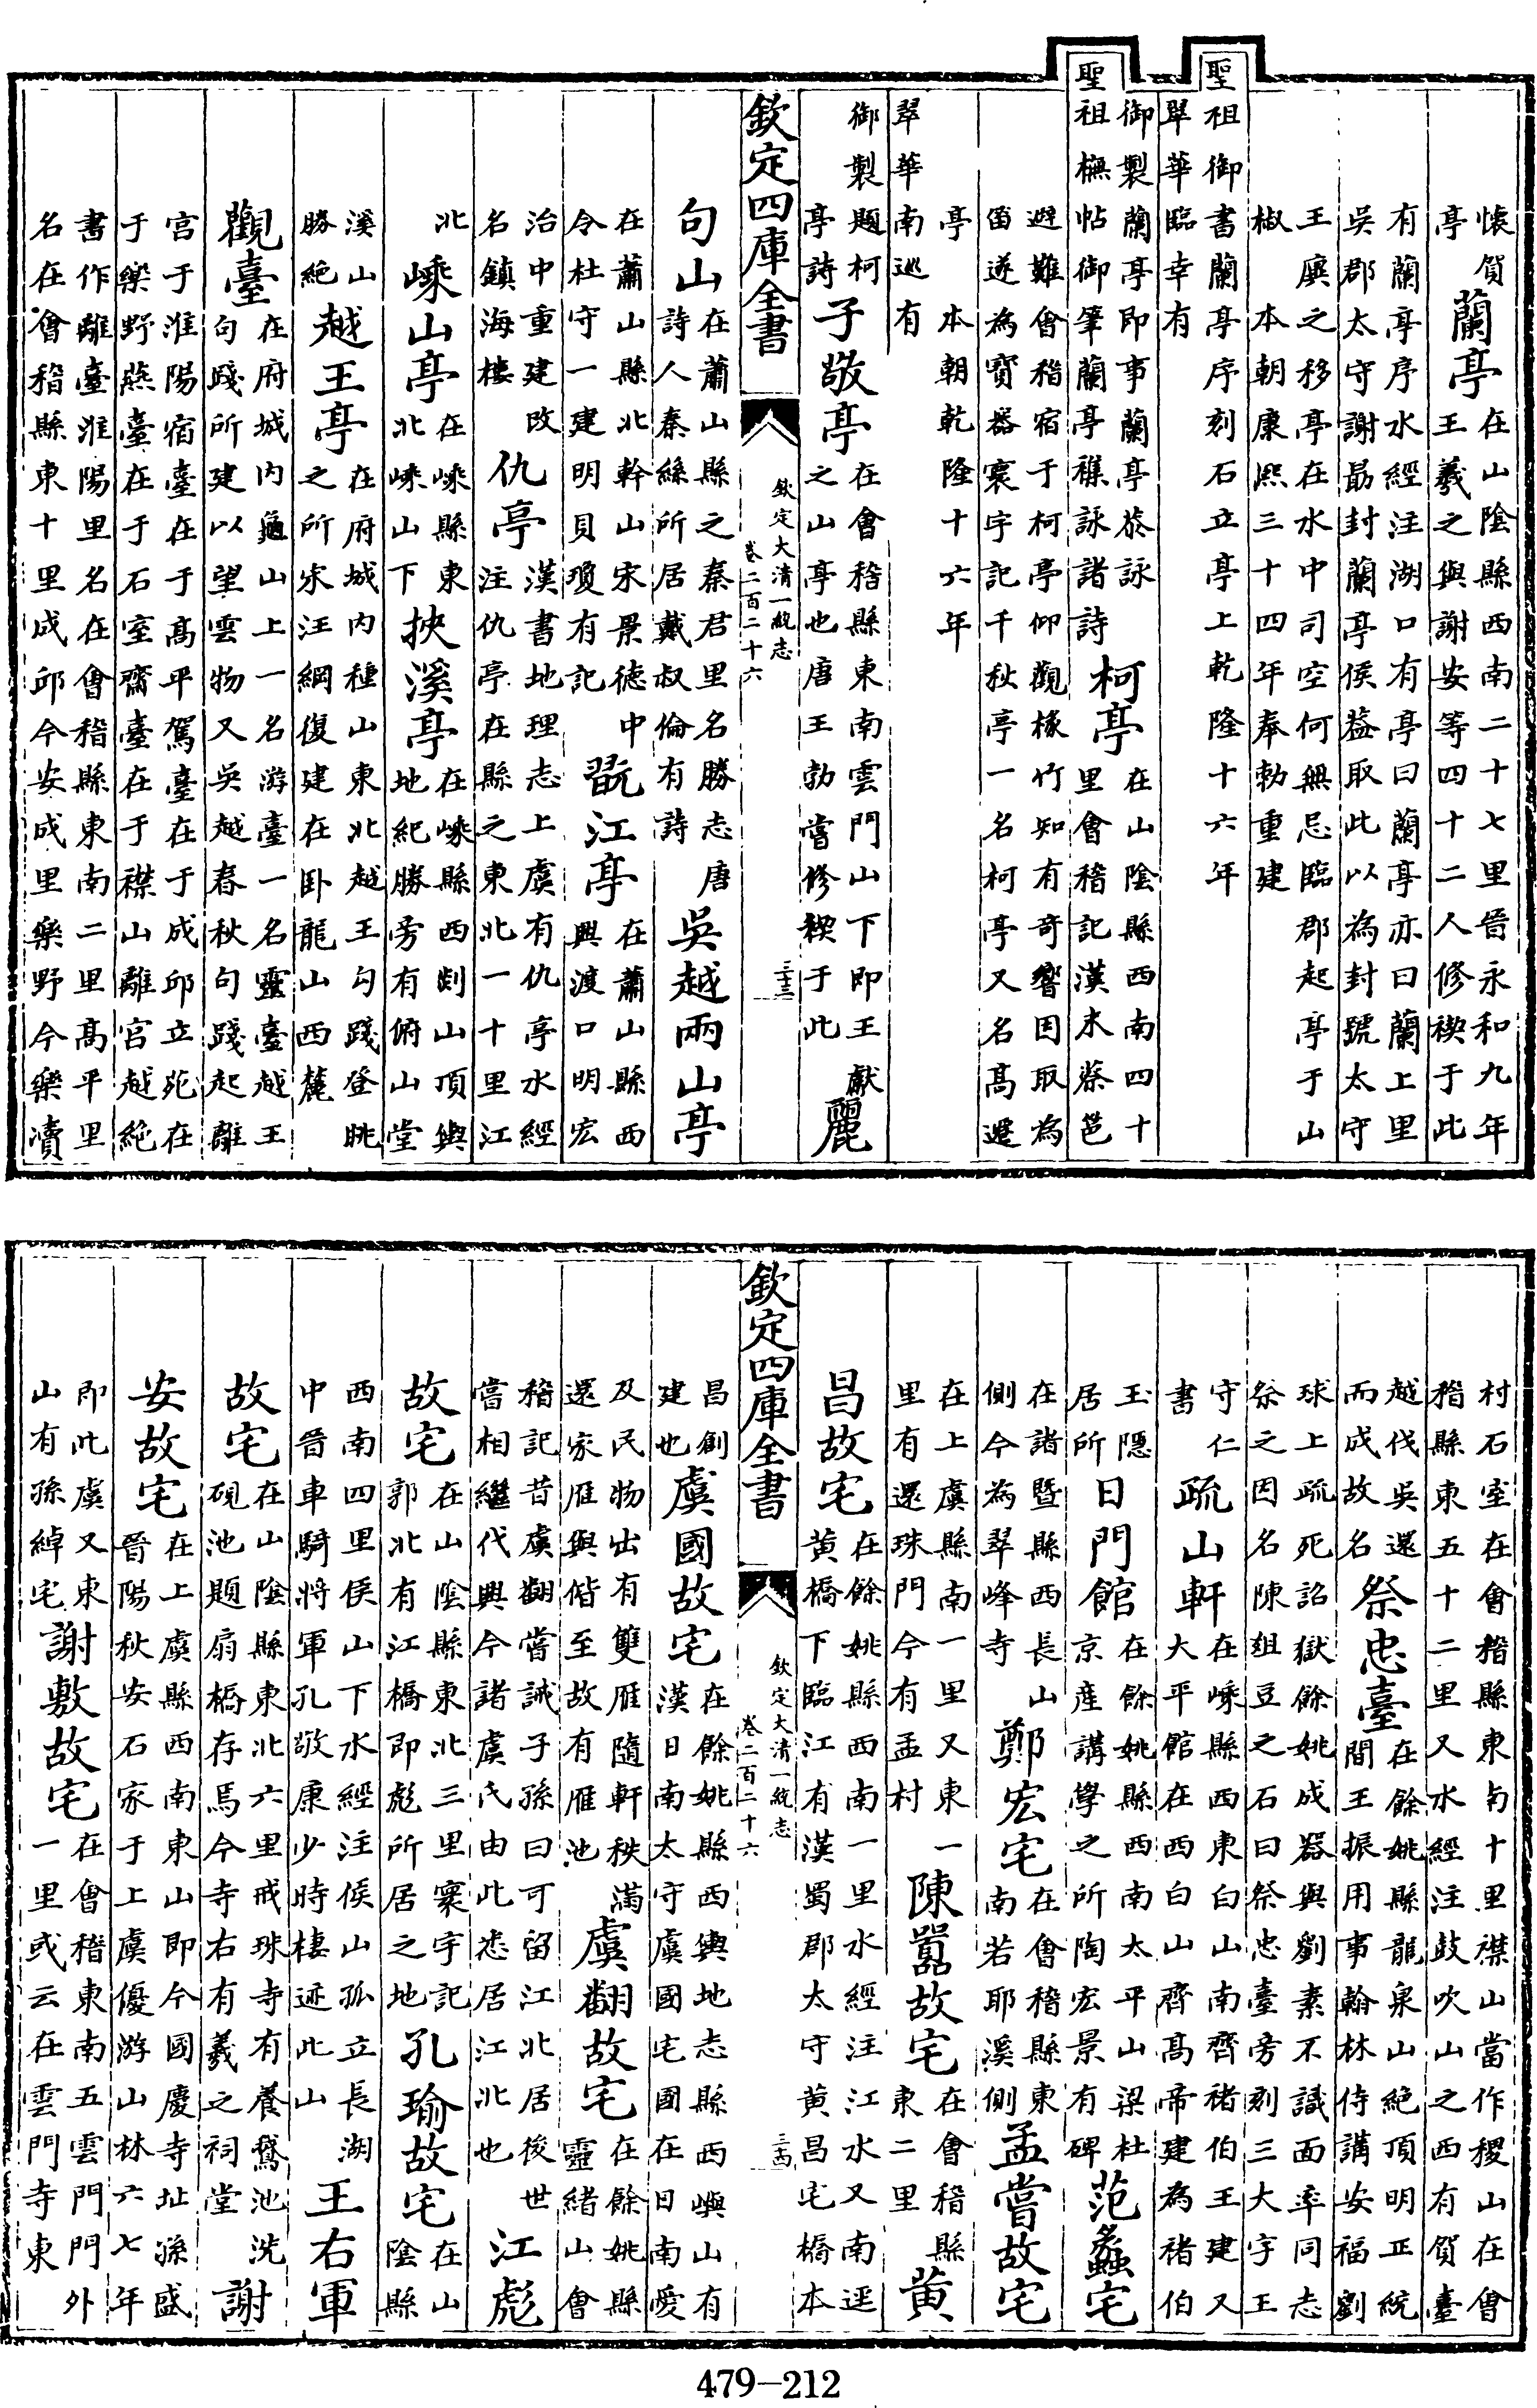 懷賀亭蘭亭在山陰縣西南二十七里晉永和九年王羲之與謝安等四十二人修禊于此
有蘭亭序水經注湖口有亭曰蘭亭亦曰蘭上里吳郡太守謝勗封蘭亭侯蓋取此以為封號太守
王廙之移亭在水中司空何無忌臨郡起亭于山椒本朝康熙三十四年奉勅重建
聖祖御書蘭亭序刻石立亭亭上乾隆十六年翠華臨幸有
御製蘭亭即事蘭亭恭詠聖祖橅帖御筆蘭亭襍詠諸詩柯亭在山陰縣西南四十里會稽記漢末蔡邕
避難會稽宿于柯亭仰觀椽竹知有奇響因取為笛遂為寶器寰宇記千秋亭一名柯亭又名高遷
亭本朝乾隆十六年翠華南巡有
御製題柯亭詩子敬亭在會稽縣東南雲門山下即王獻之山亭也唐王勃嘗修禊于此麗
欽定四庫全書 欽定大清一統志 卷二百二十六 三十三
句山在蕭山縣之秦君里名勝志唐詩人秦絲所居戴叔倫有詩吳越兩山亭
在蕭山縣北幹山宋景德中令杜守一建明貝瓊有記翫江亭在蕭山縣西興渡口明宏
治中重建改名鎮海樓仇亭漢書地理志上虞有仇亭水經注仇亭在縣之東北一十里江
北嵊山亭在嵊縣東北嵊山下挾溪亭在嵊縣西剡山頂與地紀勝旁有俯山堂
溪山勝絕越王亭在府城内種山東北越王勾踐登眺之所宋汪綱復建在卧龍山西麓
觀臺在府城内龜山上一名游臺一名靈臺越王句踐所建以望雲物又吳越春秋句踐起離
宫于淮陽宿臺在于高平駕臺在于成邱立苑在于樂野燕臺在于石室齋臺在于襟山離宫越絕
書作離臺淮陽里名在會稽縣東南二里高平里名在會稽縣東十里成邱今安成里樂野今樂瀆
村石室在會稽縣東南十里襟山當作稷山在會稽縣東五十二里又水經注鼓吹山之西有賀臺
越伐吳還而成故名祭忠臺在餘姚縣龍泉山絕頂明正統間王振用事翰林侍講安福劉
球上疏死詔獄餘姚成器與劉素不識面率同志祭之因名陳俎豆之石曰祭忠臺旁刻三大字王
守仁書疏山軒在嵊縣西東白山南齊褚伯王建又大平館在西白山齊高帝建為褚伯
玉隱居所日門館在餘姚縣西南太平山梁杜京産講學之所陶宏景有碑范蠡宅
在諸暨縣西長山側今為翠峰寺鄭宏宅在會稽縣東南若耶溪側孟嘗故宅
在上虞縣南一里又東一里有還珠門今有孟村陳囂故宅在會稽縣東二里黄
昌故宅在餘姚縣西南一里水經注江水又南逕黄橋下臨江有漢蜀郡太守黄昌宅橋本
欽定四庫全書 欽定大清一統志 卷二百二十六 三十四
昌創建也虞國故宅在餘姚縣西輿地志縣西嶼山有漢日南太守虞國宅國在日南愛
及民物出有雙雁隨軒秩滿還家雁與偕至故有雁池虞翻故宅在餘姚縣靈緒山會
稽記昔虞翻嘗誡子孫曰可留江北居後世當相繼代興今諸虞氏由此悉居江北也江彪
故宅在山陰縣東北三里寰宇記郭北有江橋即彪所居之地孔瑜故宅在山陰縣
西南四里侯山下水經注侯山孤立長湖中晉車騎將軍孔敬康少時棲迹此山王右軍
故宅在山陰縣東北六里戒珠寺有養鵞池洗硯池題扇橋存焉今寺右有羲之祠堂謝
安故宅在上虞縣西南東山即今國慶寺址孫盛晉陽秋安石家于上虞優游山林六七年
即此虞又東山有孫綽宅謝敷故宅在會稽東南五雲門外一里或云在雲門寺東
479-212